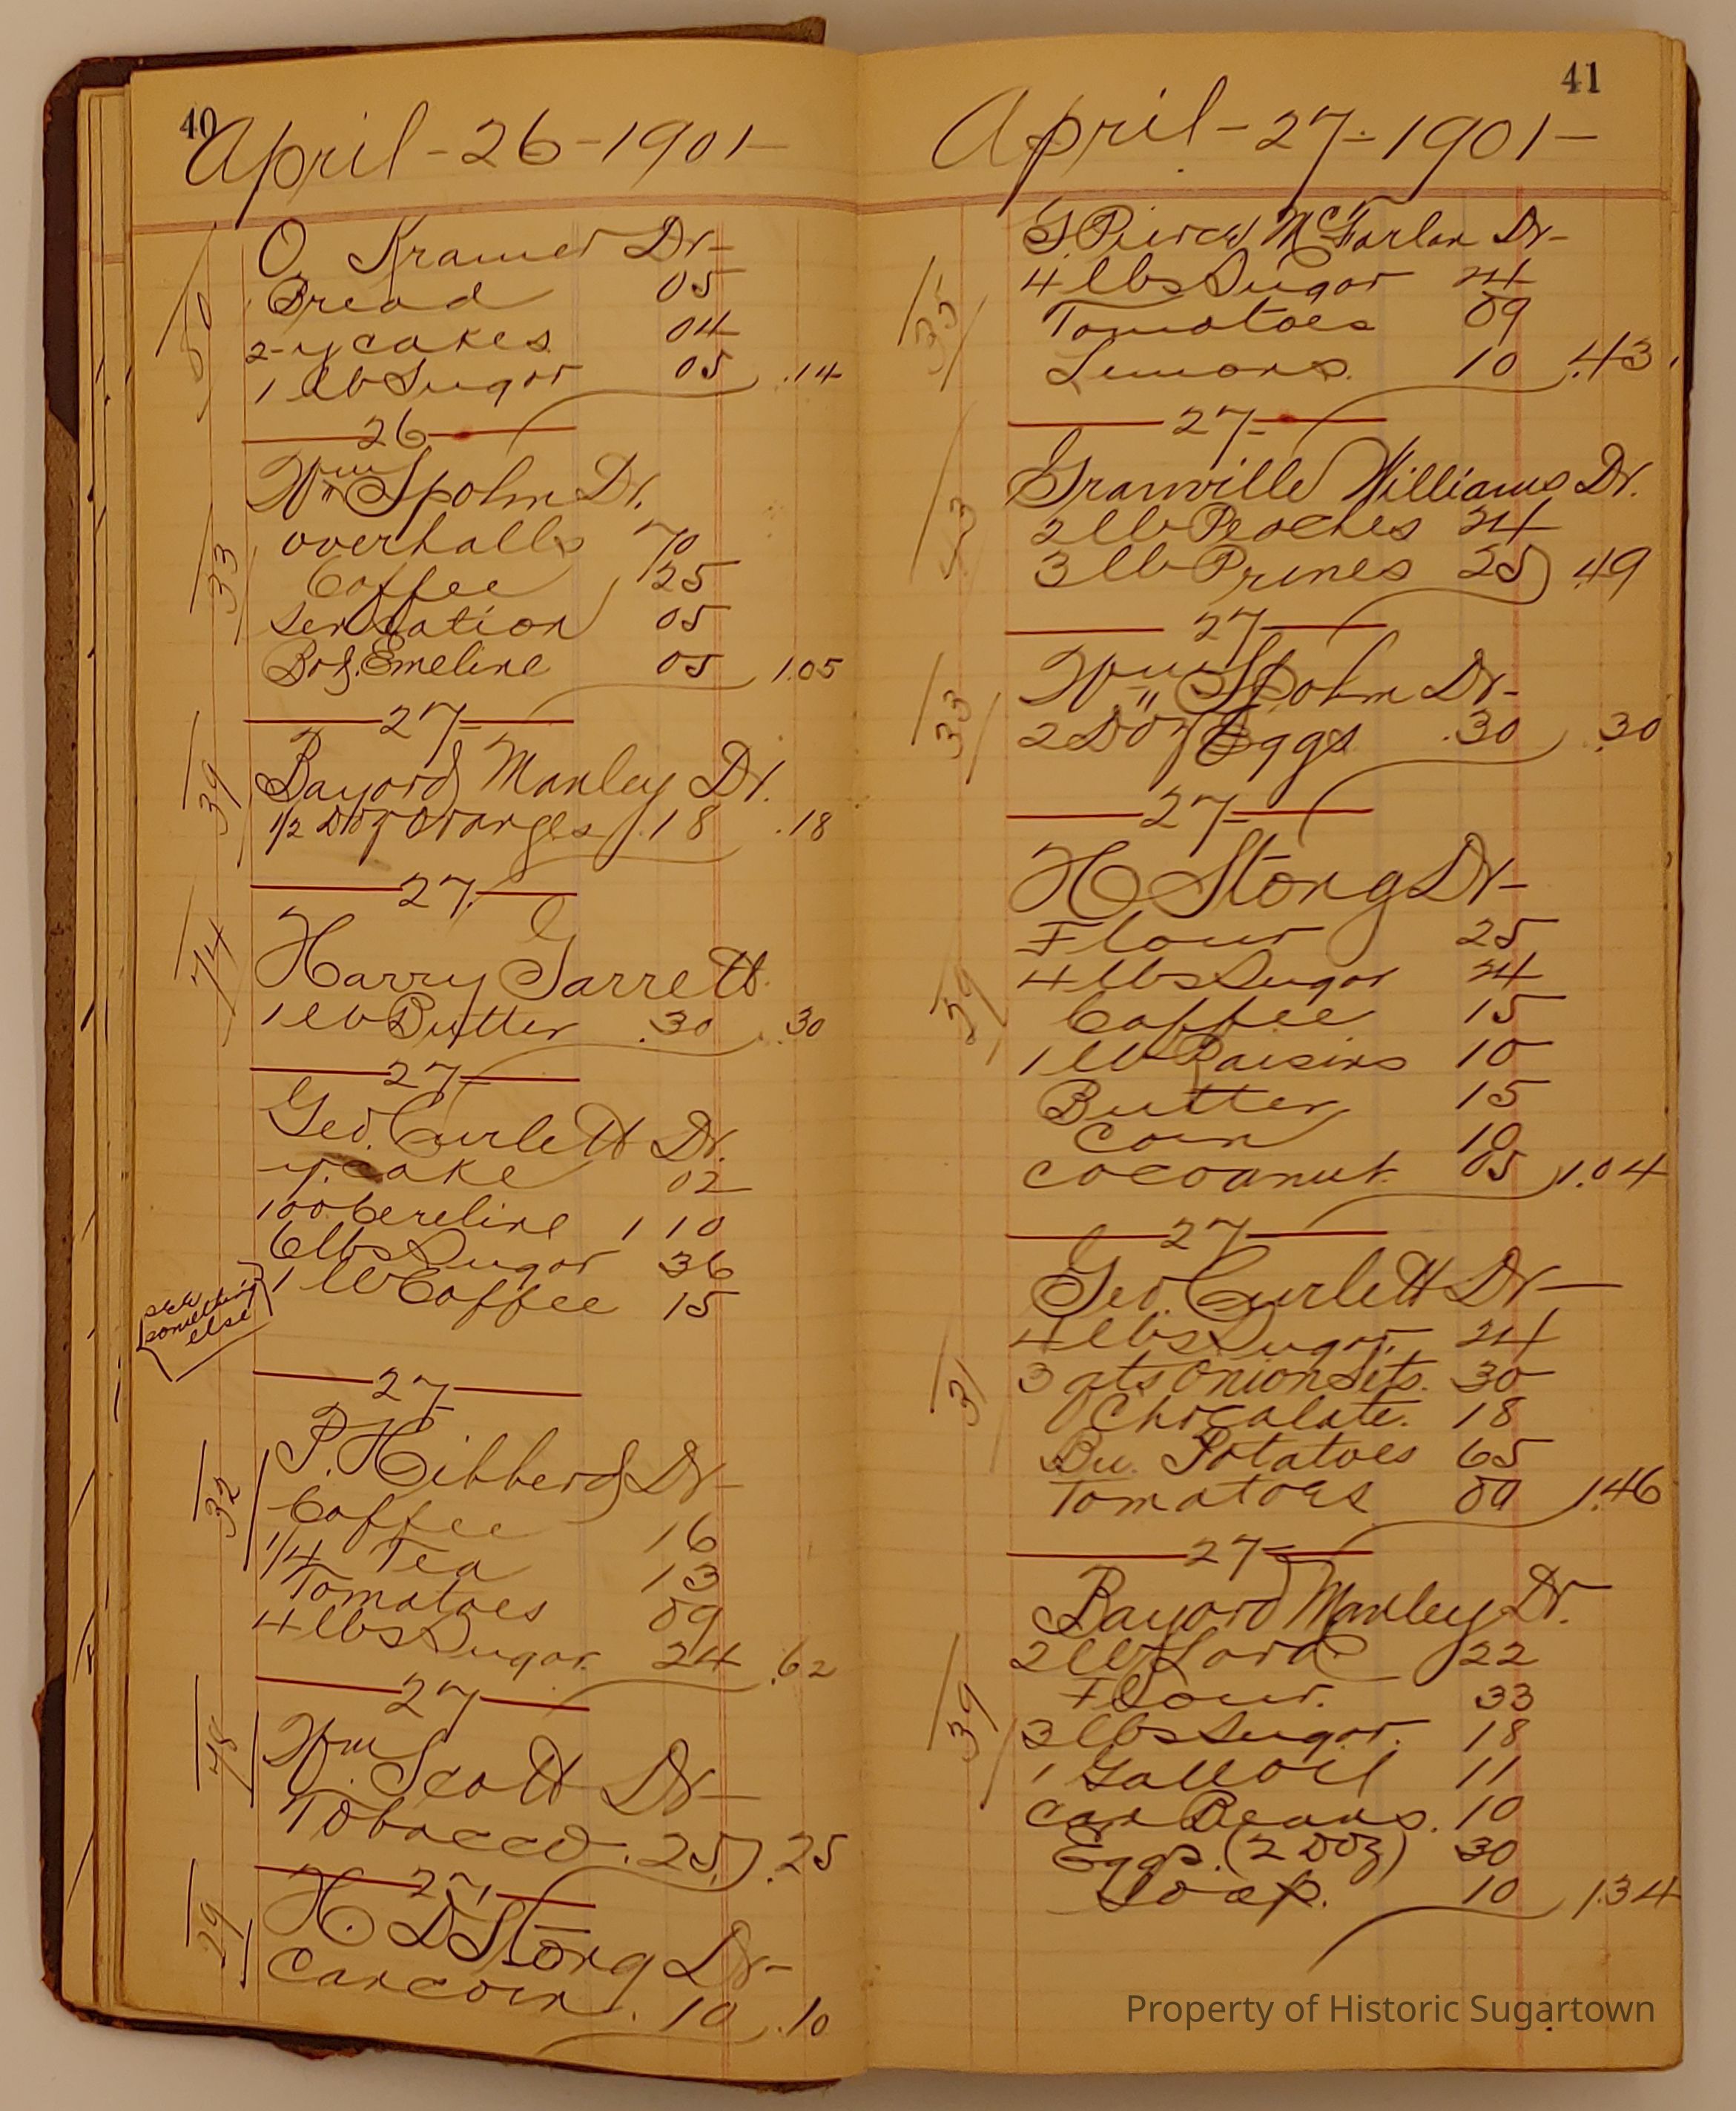 40
April - 26 - 1901 -
50
O Kramer Dr -
Bread 05
2 - y cakes 04
1 lb Sugar 05 .14
26
33
Wm Spohn Dr.
overhalls 70
Coffee 25
Sensation 05
Bot. Emeline 05 1.05
27
39
Bayard Manley Dr.
1/2 Doz Oranges .18 .18
27
74
Harry Garrett
1 lb Butter .30 .30
27
Geo. Curlett Dr.
y. cake 02
100 Cereline 1 10
6 lbs Sugar 36
1 lb Coffee 15
see
something
else
27
32
P. Hibberd Dr -
Coffee 16
1/4 Tea 13
Tomatoes 09
4 lbs Sugar 24 .62
27
78
Wm. Scott Dr -
Tobacco .25 .25
27
29
H. D Stong Dr -
Can corn .10 .10
41
April - 27 - 1901 -
35
G Pierce McFarlan Dr -
4 lbs Sugar 24
Tomatoes 09
Lemons 10 .43
27
53
Granville Williams Dr.
2 lb Peaches 24
3 lb Prunes 25 49
27
33
Wm Spohn Dr -
2 Doz Eggs .30 .30
27
39
H Stong Dr -
Flour 25
4 lbs Sugar 24
Coffee 15
1 lb Raisins 10
Butter 15
Corn 10
Cocoanut 05 1.04
27
31
Geo. Curlett Dr -
4 lbs Sugar 24
3 qts Onion Sets. 30
Chocalate. 18
Bu. Potatoes 65
Tomatoes 09 1.46
27
39
Bayard Manley Dr.
2 lb Lard 22
Flour. 33
3 lbs Sugar. 18
1 Gall Oil 11
can Beans. 10
Eggs. (2 Doz) 30
Soap. 10 1.34
Property of Historic Sugartown